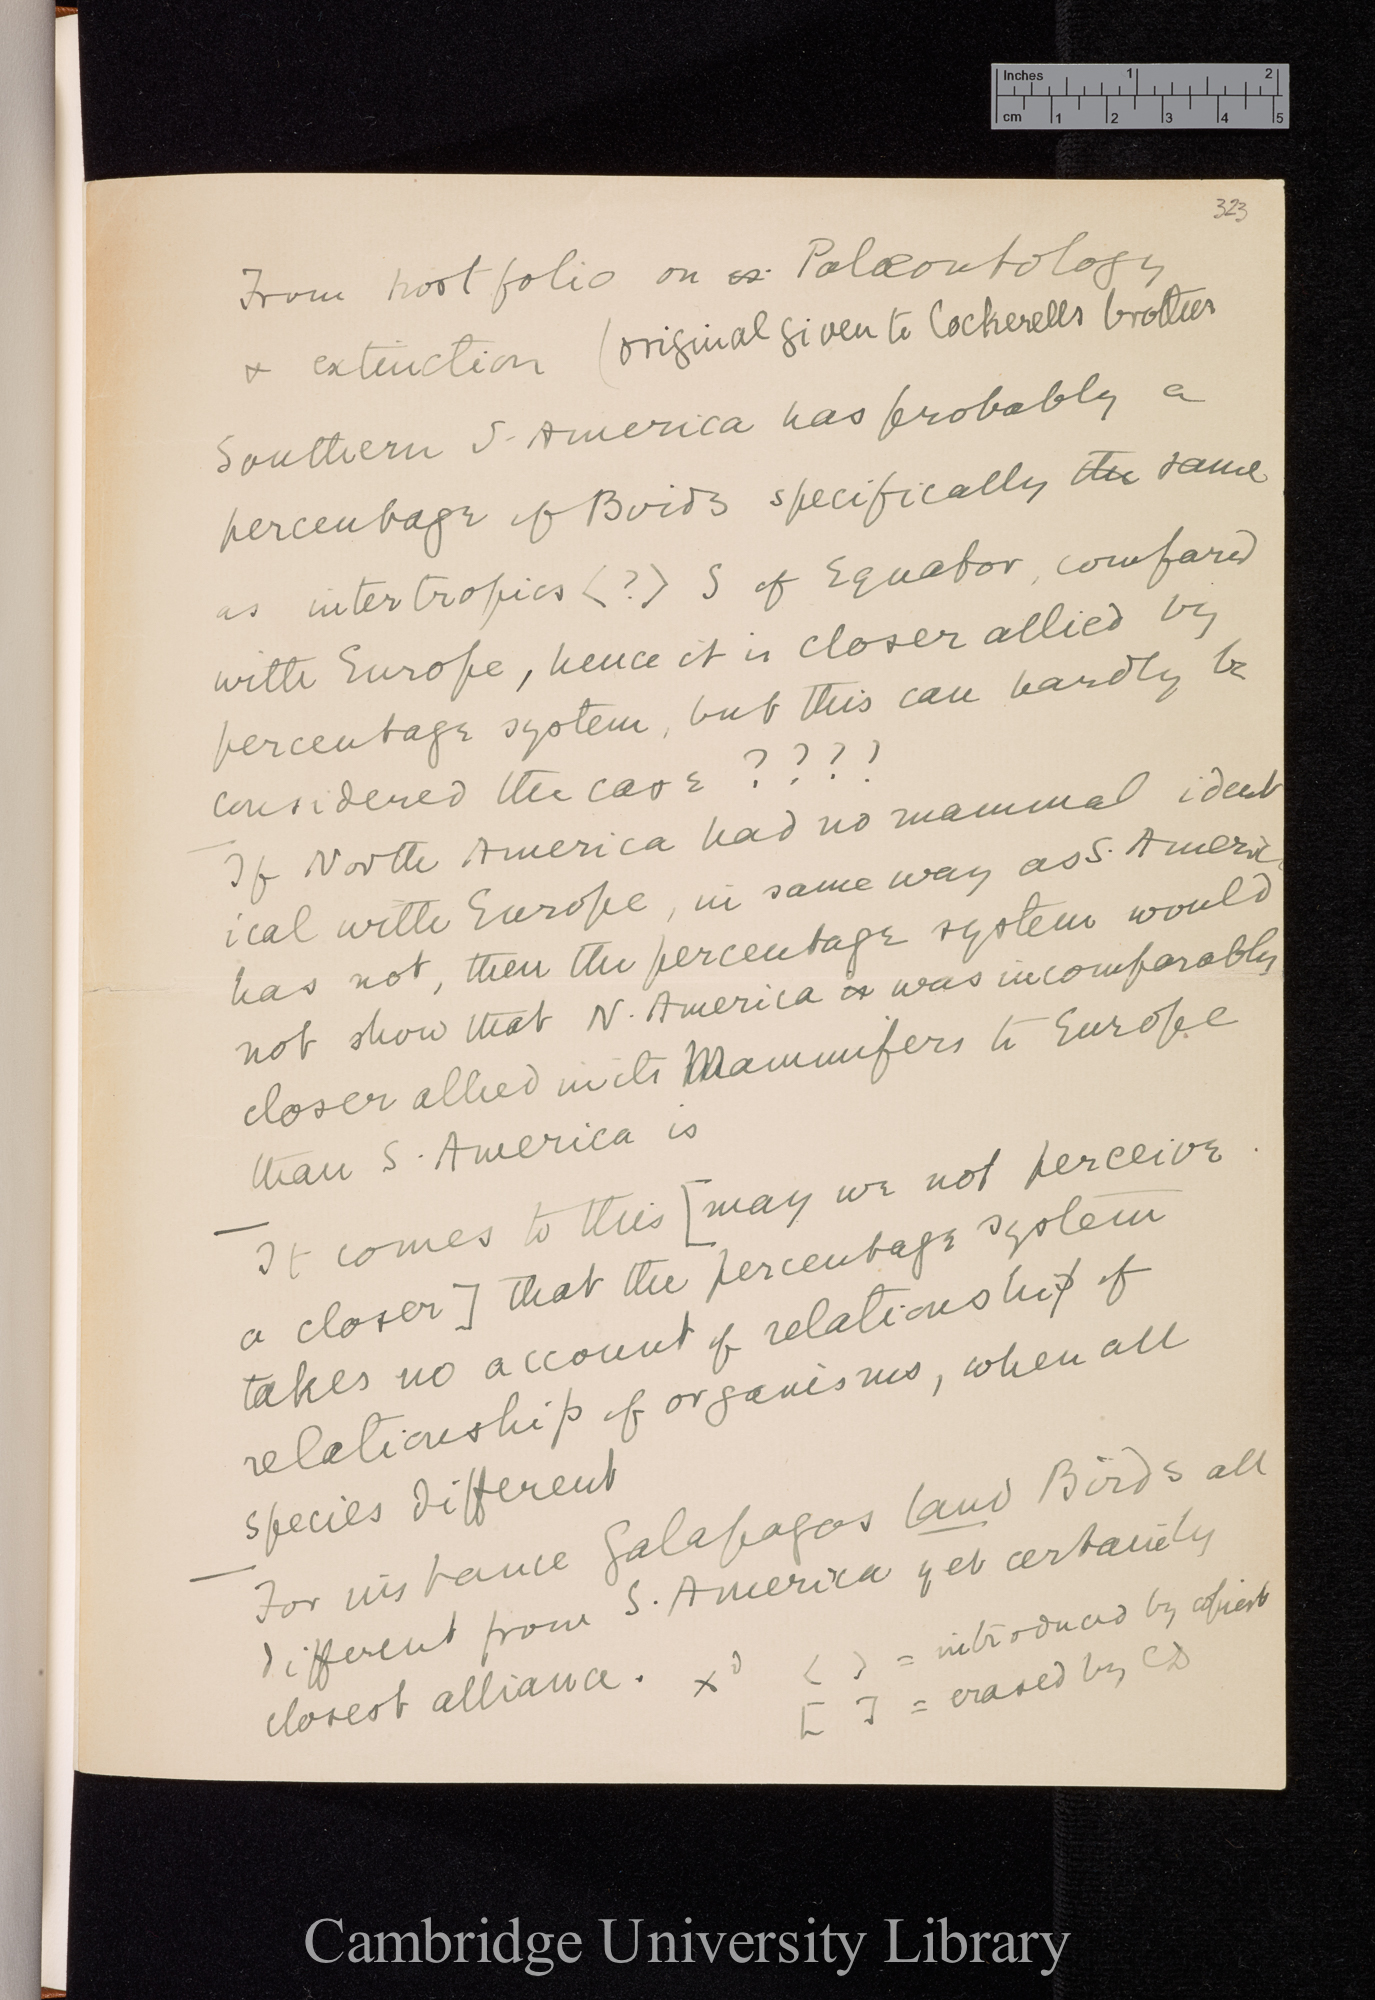 Inches 1 2
cm 1 2 3 4 5
323
From portfolio on ex Palæontology
& extinction (original given to Cockerells brother
Southern S. America has probably a
percentage of Birds specifically the same
as intertropics <?> S of Equator, compared
with Europe, hence it is closer allied by
percentage system, but this can hardly be
considered the case ? ? ? ?
If North America had no mammal ident
ical with Europe, in same way as S. Americ
has not, then the percentage system would
not show that N. America is was incomparably
closer allied in its Mammifers to Europe
than S. America is
It comes to this [may we not perceive
a closer] that the percentage system
takes no account of relationship of
relationship of organisms, when all
species different
For instance Galapagos land Birds all
different from S. America yet certainly
closest alliance. x᾿ᵈ
< > = introduced by copiest
[ ] = erased by CD
Cambridge University Library